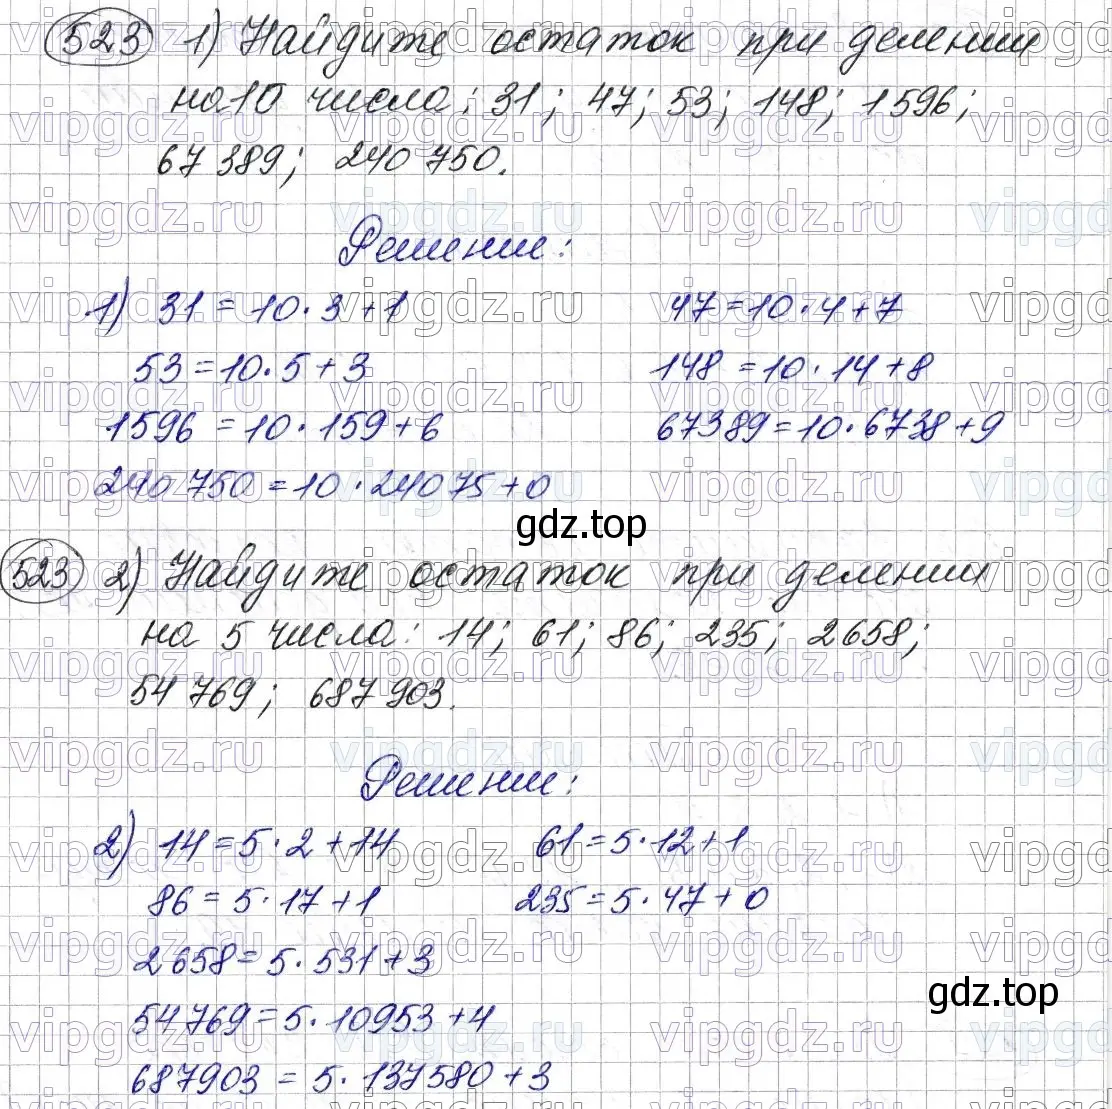 523 1) Найдите остаток при делении
на 10 числа: 31; 47; 53; 148; 1596;
67 389; 240 750.
Решение:
1) 31 = 10 · 3 + 1 47 = 10 · 4 + 7
53 = 10 · 5 + 3 148 = 10 · 14 + 8
1596 = 10 · 159 + 6 67389 = 10 · 6738 + 9
240 750 = 10 · 24075 + 0
gdz.top
523 2) Найдите остаток при делении
на 5 числа: 14; 61; 86; 235; 2658;
54 769; 687 903.
Решение:
2) 14 = 5 · 2 + 14 61 = 5 · 12 + 1
86 = 5 · 17 + 1 235 = 5 · 47 + 0
2658 = 5 · 531 + 3
gdz.top
54769 = 5 · 10953 + 4
687903 = 5 · 137580 + 3
vipgdz.ru